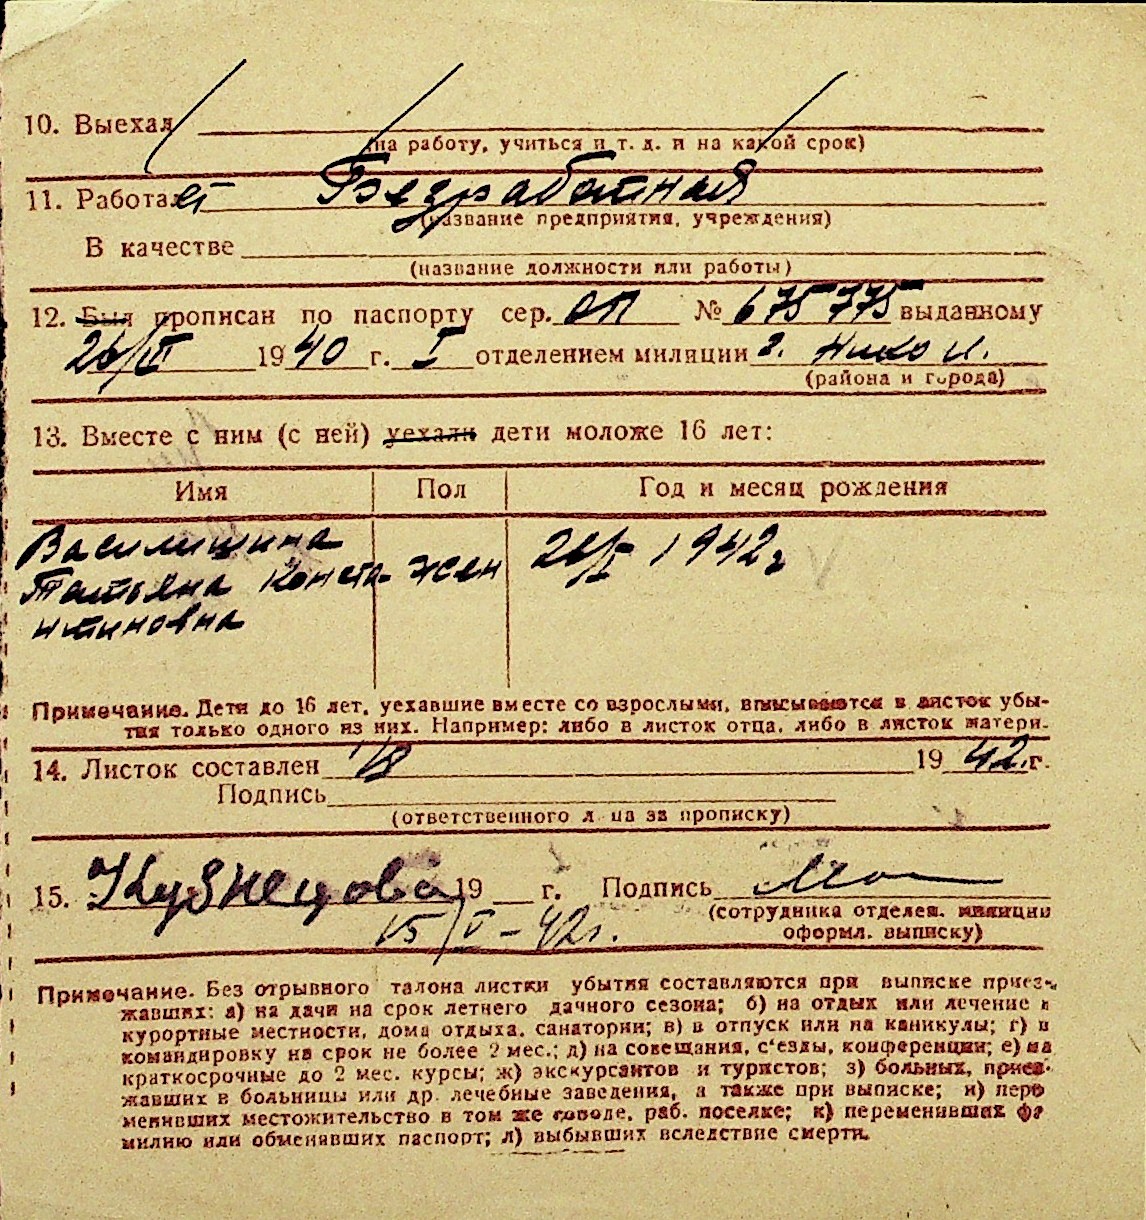 10. Выехал
(на работу, учиться и т. д. и на какой срок)
11. Работает Безработная
(название предприятия, учреждения)
В качестве
(название должности или работы)
12. Был прописан по паспорту сер. ОП № 675775 выданному
26/VI 1940 г. I отделением милиции г. Никол.
(района и города)
13. Вместе с ним (с ней) уехали дети моложе 16 лет:
Имя Пол Год и месяц рождения
Василишина
Татьяна Конста- жен 26/I 1942г
нтиновна
Примечание. Дети до 16 лет, уехавшие вместе со взрослыми, вписываются в листок убы-
тия только одного из них. Например: либо в листок отца, либо в листок матери.
14. Листок составлен 1942.г.
Подпись
(ответственного лица за прописку)
15. Кузнецова 19 г. Подпись
15/V-42г.
(сотрудника отделен. милиции
оформл. выписку)
Примечание. Без отрывного талона листки убытия составляются при выписке приез-
жавших: а) на дачи на срок летнего дачного сезона; б) на отдых или лечение в
курортные местности, дома отдыха, санатории; в) в отпуск или на каникулы; г) в
командировку на срок не более 2 мес.; д) на совещания, с'езды, конференции; е) на
краткосрочные до 2 мес. курсы; ж) экскурсантов и туристов; з) больных, приез-
жавших в больницы или др. лечебные заведения, а также при выписке; и) пере
менивших местожительство в том же городе, раб. поселке; к) переменивших фа
милию или обменявших паспорт; л) выбывших вследствие смерти.